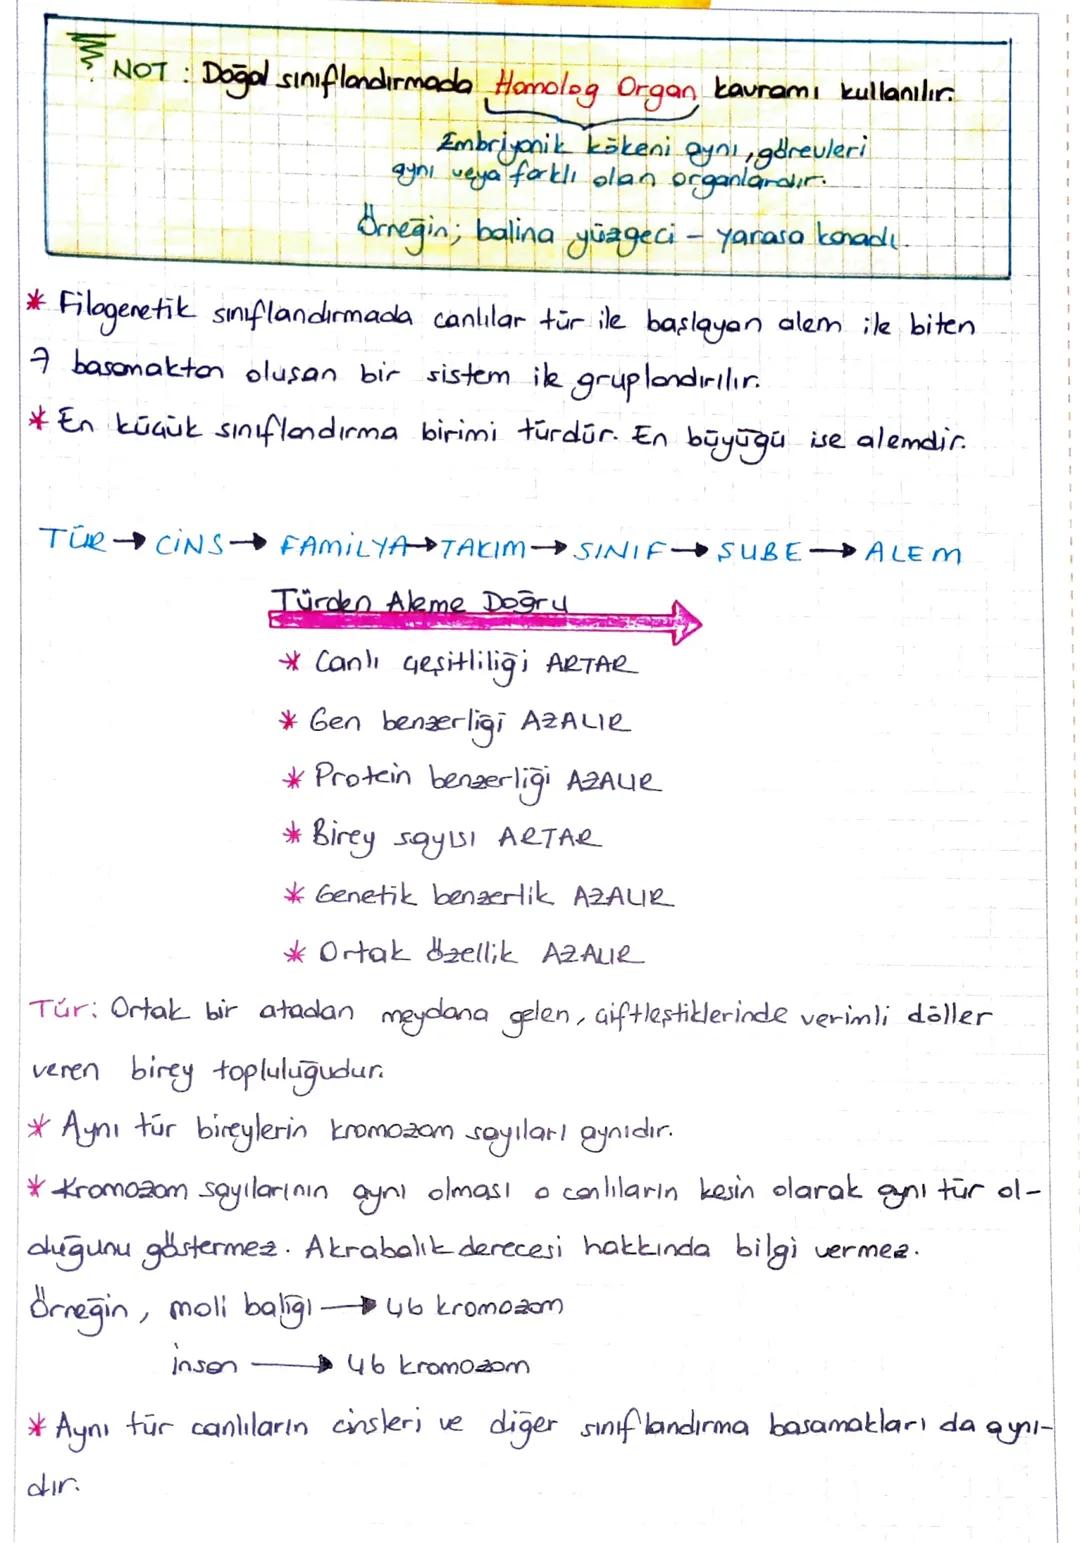 NOT : Doğal sınıflandırmada Homolog Organ kavramı kullanılır.
Embriyonik kökeni aynı, görevleri
aynı veya farklı olan organlardır.
Örneğin; balina yüzgeci - yarasa kanadı.
* Filogenetik sınıflandırmada canlılar tür ile başlayan alem ile biten
7 basamaktan oluşan bir sistem ile gruplandırılır.
* En küçük sınıflandırma birimi türdür. En büyüğü ise alemdir.
TÜR → CİNS → FAMİLYA → TAKIM → SINIF → ŞUBE → ALEM
Türden Aleme Doğru
* Canlı çeşitliliği ARTAR
* Gen benzerliği AZALIR
* Protein benzerliği AZALIR
* Birey sayısı ARTAR
* Genetik benzerlik AZALIR
* Ortak özellik AZALIR
Tür: Ortak bir atadan meydana gelen, çiftleştiklerinde verimli döller
veren birey topluluğudur.
* Aynı tür bireylerin kromozom sayıları aynıdır.
* Kromozom sayılarının aynı olması o canlıların kesin olarak aynı tür ol-
duğunu göstermez. Akrabalık derecesi hakkında bilgi vermez.
Örneğin, moli balığı → 46 kromozom
insan → 46 kromozom
* Aynı tür canlıların cinsleri ve diğer sınıflandırma basamakları da aynı-
dır.